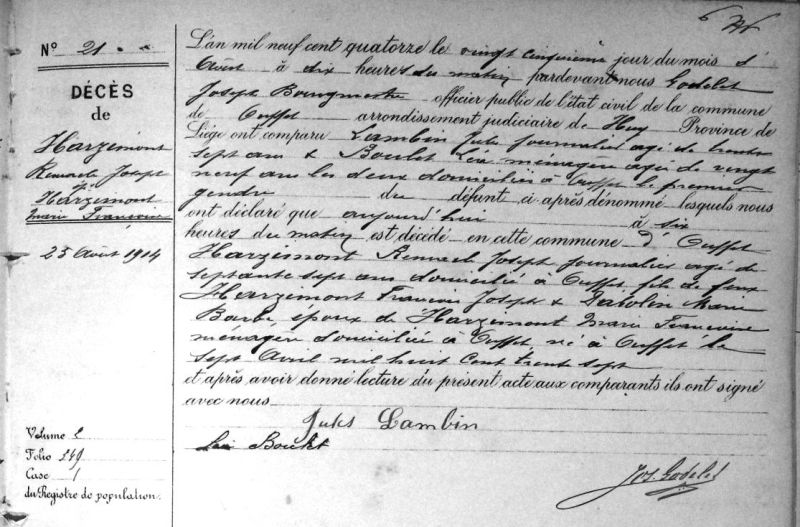 N° 21
DÉCÈS
de
Harzimont
Remacle Joseph
Ep
Harzimont
Marie Françoise
25 Août 1914
Volume 2
Folio 240
Case 1
du Registre de population.
L'an mil neuf cent quatorze le vingt cinquième jour du mois d'
Août à dix heures du matin pardevant nous Godelet
Joseph Bourgmestre officier public de l'état civil de la commune
de Ouffet arrondissement judiciaire de Huy Province de
Liège ont comparu Lambin Jules journalier agé de trente
sept ans & Boulet Léa ménagère agée de vingt
neuf ans les deux domiciliés à Ouffet le premier
gendre du défunt ci après dénommé lesquels nous
ont déclaré que aujourd'hui à six
heures du matin est décédé en cette commune d'Ouffet
Harzimont Remacle Joseph journalier agé de
septante sept ans domicilié à Ouffet fils de feux
Harzimont François Joseph & Marie
Barbe, époux de Harzimont Marie Françoise
ménagère domiciliée à Ouffet né à Ouffet le
sept Avril mil huit cent trente sept
et après avoir donné lecture du présent acte aux comparants ils ont signé
avec nous
Jules Lambin
Léa Boulet
Jos. Godelet